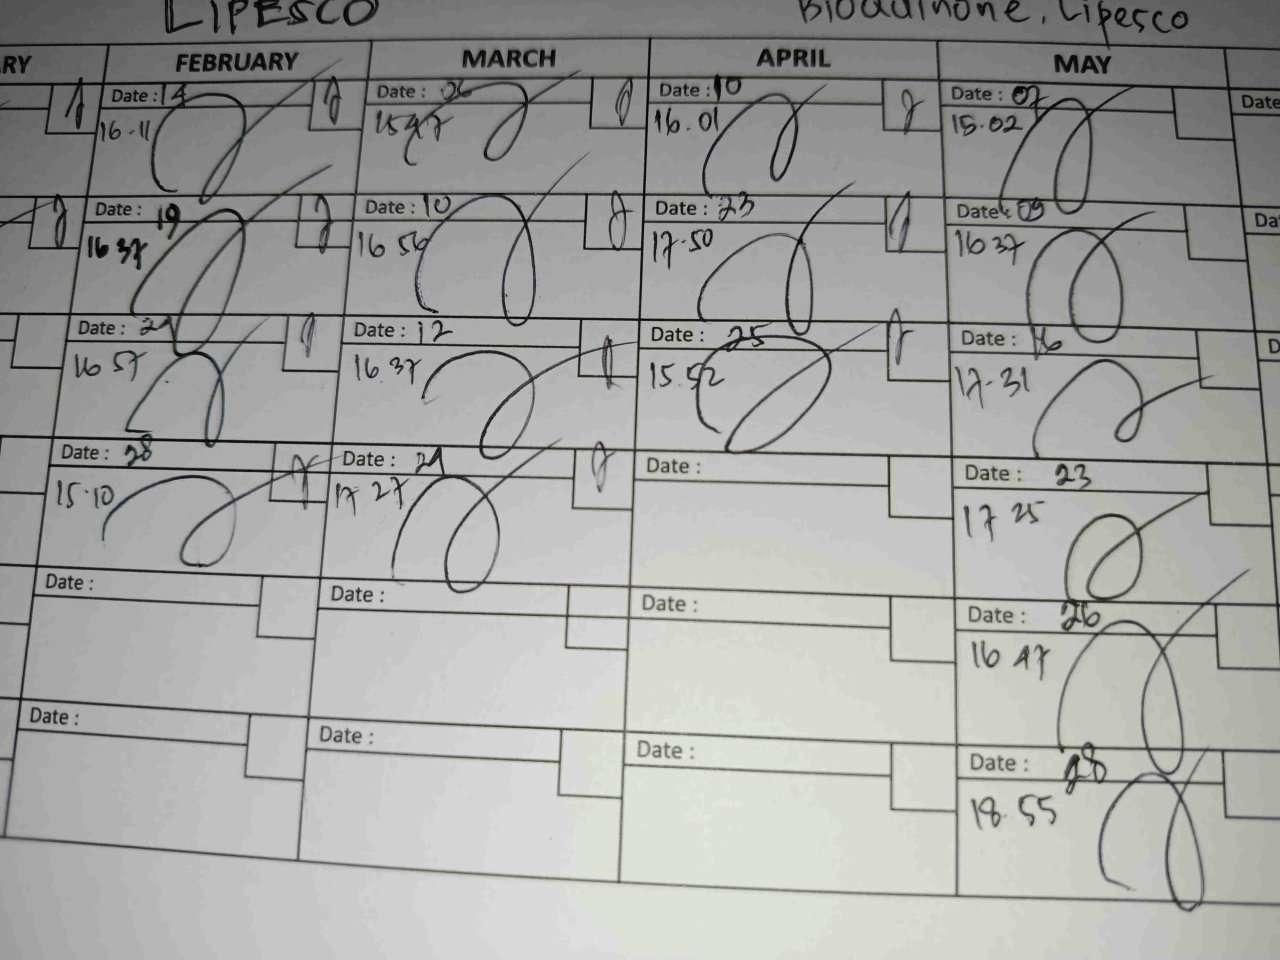 LIPESCO
Lipesco
RY FEBRUARY MARCH APRIL MAY
Date : 14 Date : 06 Date : 10 Date : 07 Date
16.11 15 47 16.01 15.02
Date : 19 Date : 10 Date : 23 Date : 09 Da
16 37 16 56 17.50 16 37
Date : 24 Date : 12 Date : 25 Date : 16 D
16 57 16.37 15.52 17.31
Date : 28 Date : 24 Date : Date : 23
15.10 17 27 17 25
Date : Date : Date : Date : 26
16 47
Date : Date : Date : Date : 28
18.55